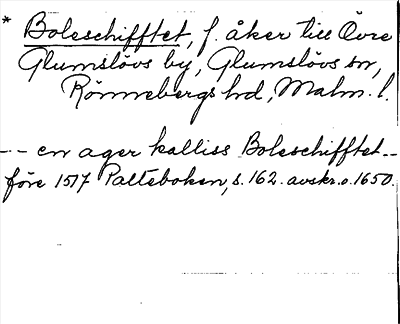 * Boleschifftet, f. åker till Övre
Glumslövs by, Glumslövs sn,
Rönnebergs hd, Malm. l.
--- en ager kalliss Boleschifftet --
före 1517 Palteboken, s. 162. avskr. o. 1650.